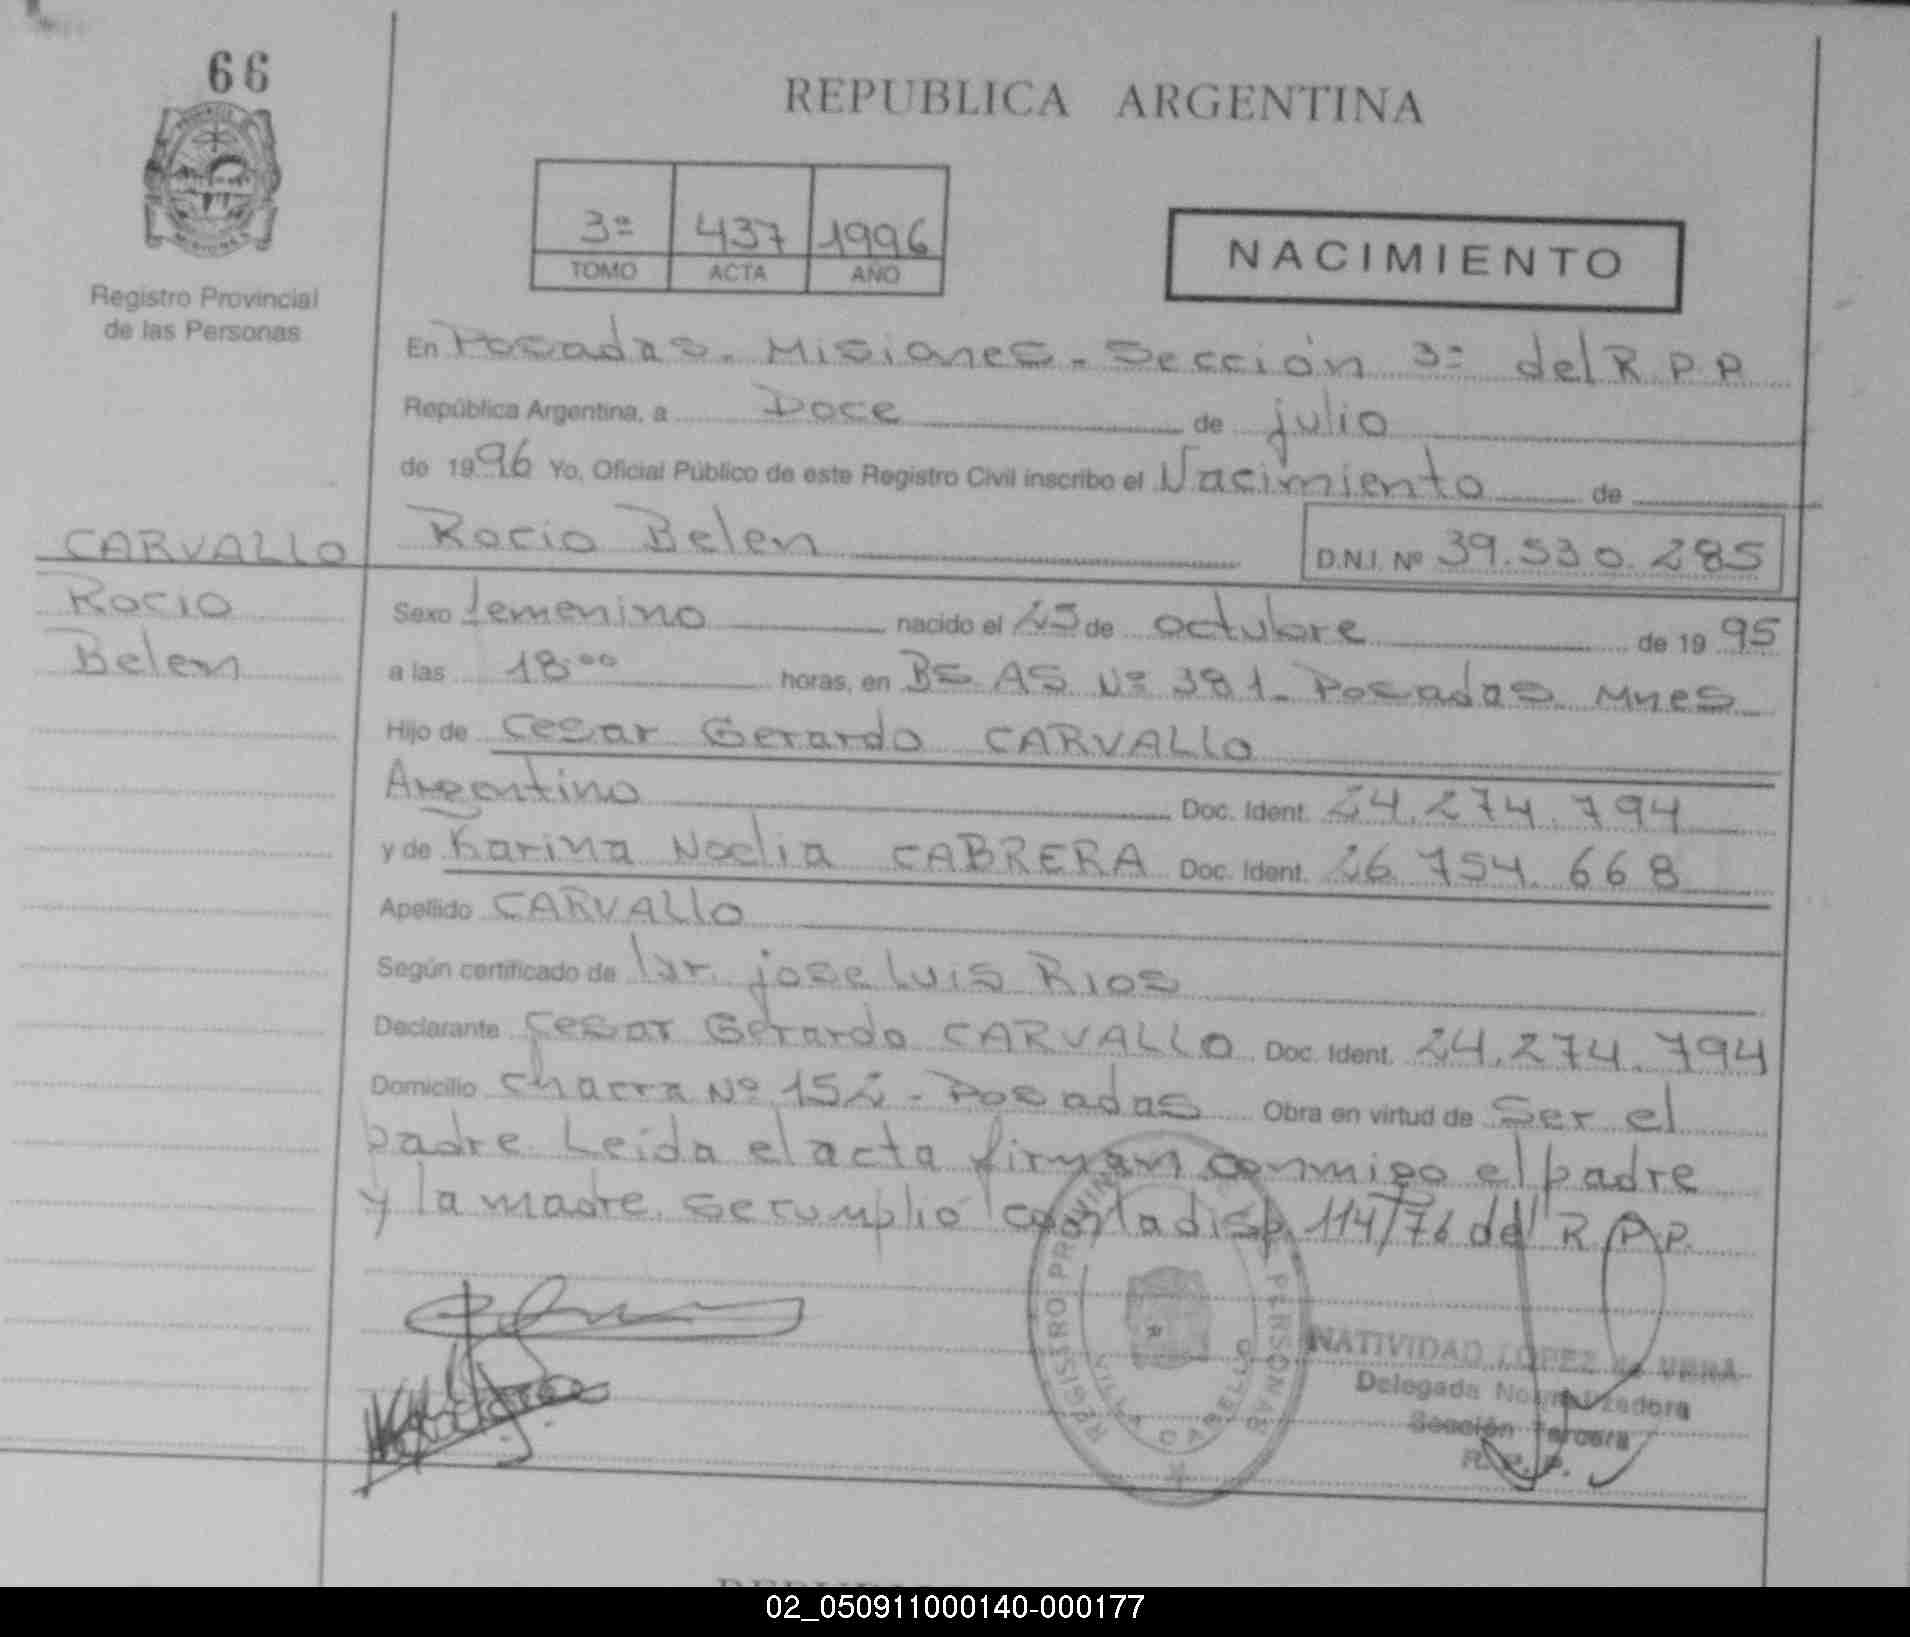 66
REPUBLICA ARGENTINA
3ª 437 1996
TOMO ACTA AÑO
NACIMIENTO
Registro Provincial
de las Personas
En Posadas - Misiones - Sección 3ª del R.P.P.
República Argentina, a Doce de julio
de 1996 Yo, Oficial Público de este Registro Civil inscribo el Nacimiento de
CARVALLO
Rocio
Belen
Rocio Belen D.N.I. Nº 39.530.285
Sexo femenino nacido el 25 de octubre de 1995
a las 18:00 horas, en BS. AS. Nº 381 - Posadas Mnes
Hijo de Cesar Gerardo CARVALLO
Argentino Doc. Ident. 24.274.794
y de Karina Noelia CABRERA Doc. Ident. 26.754.668
Apellido CARVALLO
Según certificado de jose Luis Rios
Declarante Cesar Gerardo CARVALLO Doc. Ident. 24.274.794
Domicilio Chacra Nº 152 - Posadas Obra en virtud de Ser el
padre. Leida el acta firman conmigo el padre
y la madre. se cumplió con la disp. 114/76 del R.P.P.
REGISTRO PROVINCIAL DE LAS PERSONAS
VILLA CABELLO
NATIVIDAD LOPEZ de VERA
Delegada Normalizadora
Sección Tercera
R. P. P.
02_050911000140-000177